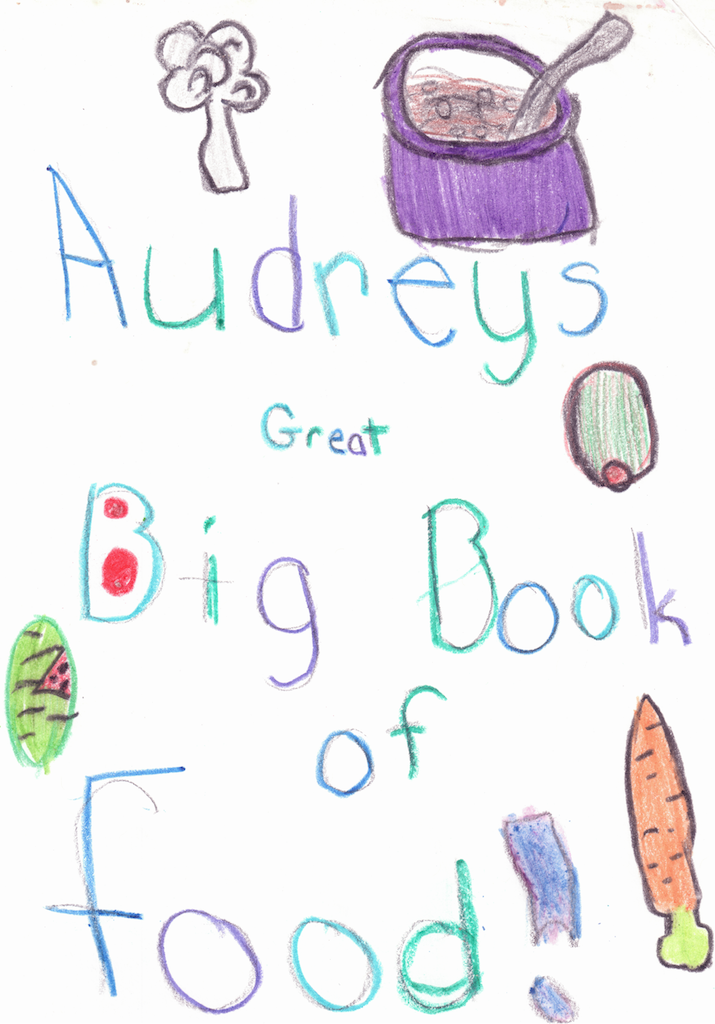 Audreys
Great
Big Book
of
Food!